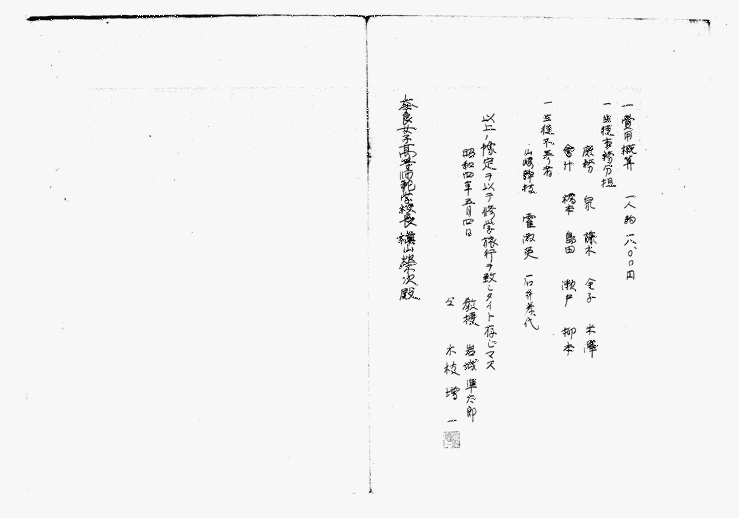 一 費用概算 一人約 一八.〇〇円
一 生徒事務分担
庶務 泉 藤木 金子 米澤
會計 橋本 島田 瀬戸 柳本
一 生徒不参者
山崎 霍淑英 石井
以上ノ豫定ヲ以テ修学旅行ヲ致シタイト存ジマス
昭和四年五月四日
教授 岩城準太郎
仝 木枝増一
奈良女子高等師範学校長 横山榮次殿